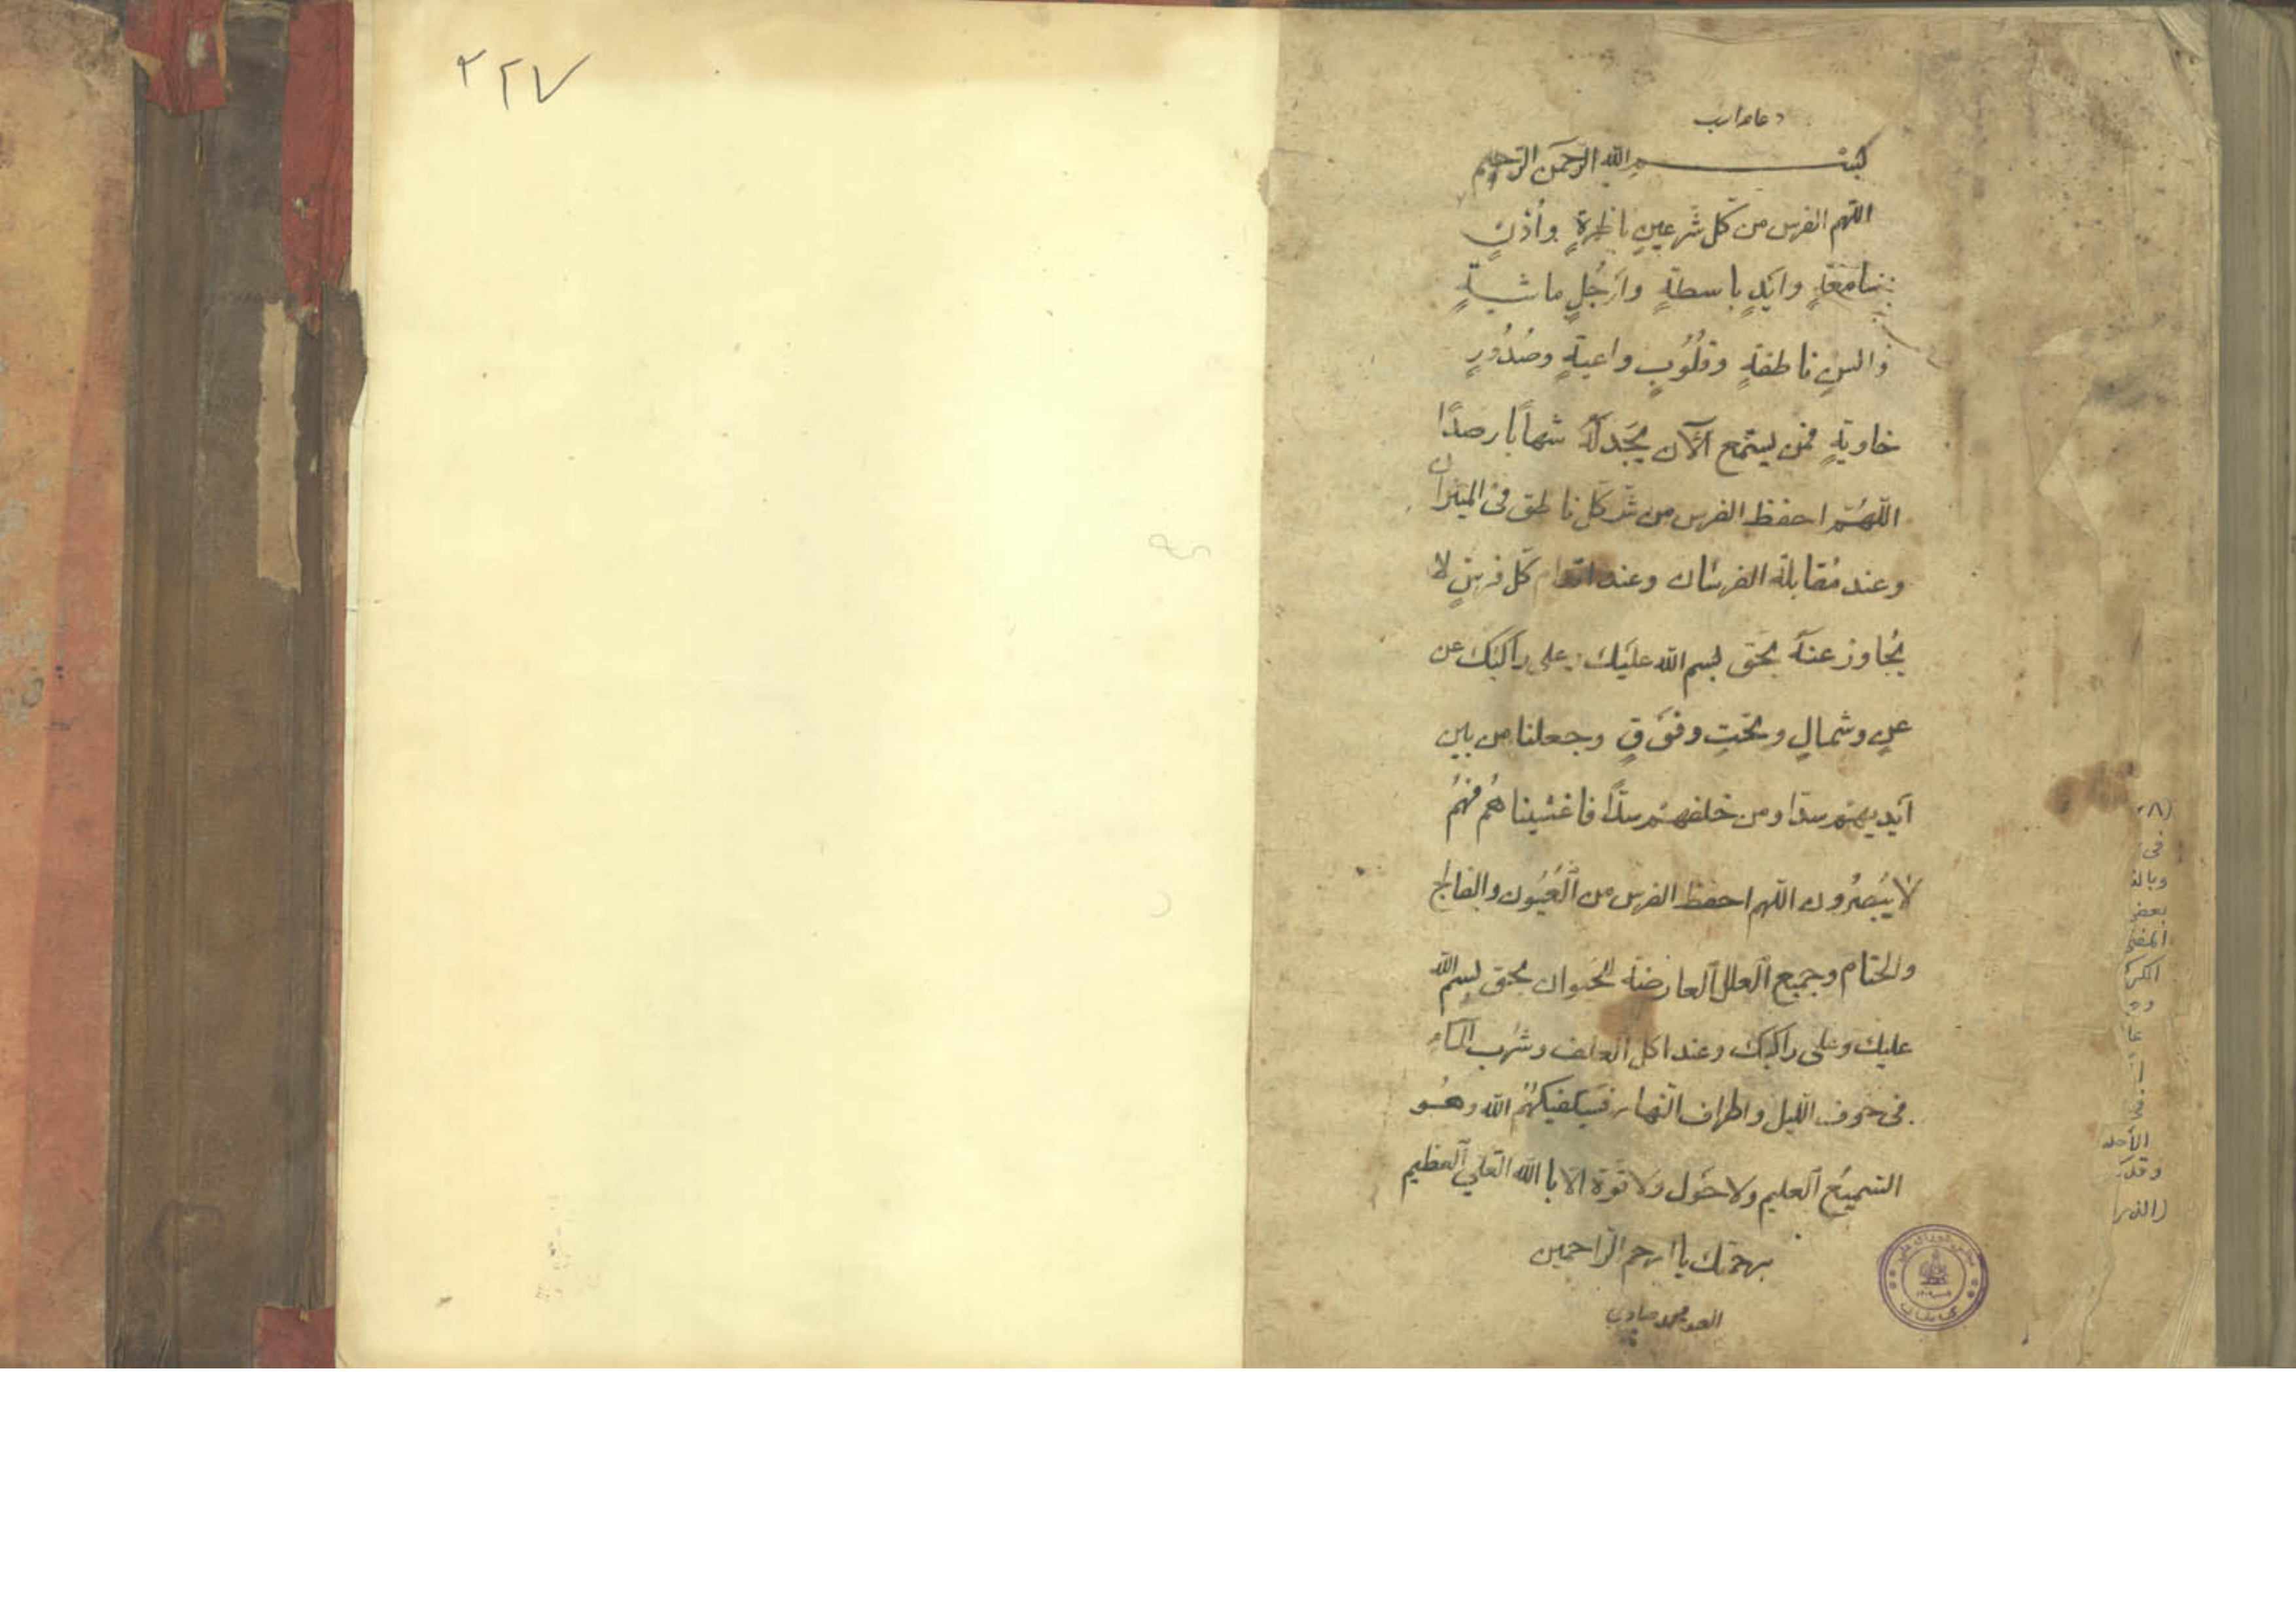 ٢٢٧
بسم الله الرحمن الرحيم
اللهم الفرس من كل شر عينٍ ناظرةٍ واُذنٍ
سامعةٍ وايدٍ باسطةٍ وارجُلٍ ماشيةٍ
والسنٍ ناطقةٍ وقلُوُبٍ واعيةٍ وصُدُورٍ
خاويةٍ فمن يستمع الآن يجَد لَهُ شهاباً رصدًا
اللهُم احفظ الفرس من شر كل ناطق فى الميزان
وعند مُقابلة الفرسان وعند اقدام كل فرسٍ لا
يُجاوز عنهُ بحق بسم الله عليَك وعلى راكبَك عن
عنٍ وشمالٍ وتحتٍ وفوَقٍ وجعلنا من بين
اَيديهم سدا ومن خلفهم سدًّا فاغشيناهُم فهُم
لا يُبصرُون اللهم احفظ الفرس من العُيُون والفالج
والختام وجميع العلل العارضة الحيوان بحق بسم الله
عليك وعلى راكبك وعند اكل العلف وشرب الماءِ
فى جوف الليل واطراف النهار فسيكفيكهُم الله وهُو
السميعُ العليم ولا حَول ولا قوة الا باالله العلي العظيم
برحمتك ياارحم الراحمين
العبد محمد صادق
فى
وبالذ
بعض